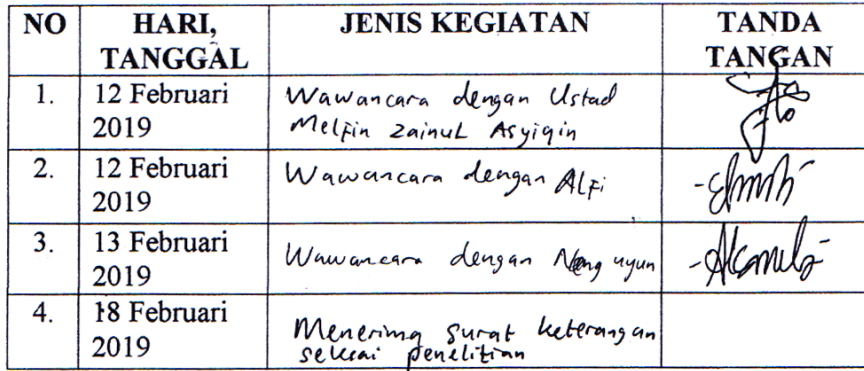 NO HARI, TANGGAL JENIS KEGIATAN TANDA TANGAN
1. 12 Februari 2019 Wawancara dengan Ustad
Melfin Zainul Asyiqin
2. 12 Februari 2019 Wawancara dengan Alfi
3. 13 Februari 2019 Wawancara dengan Neng uyun
4. 18 Februari 2019 Menerima surat keterangan
selesai penelitian